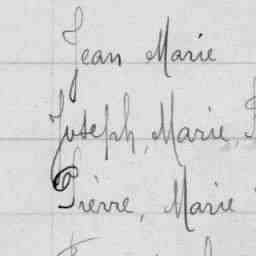 Jean Marie
Joseph, Marie,
Pièrre, Marie